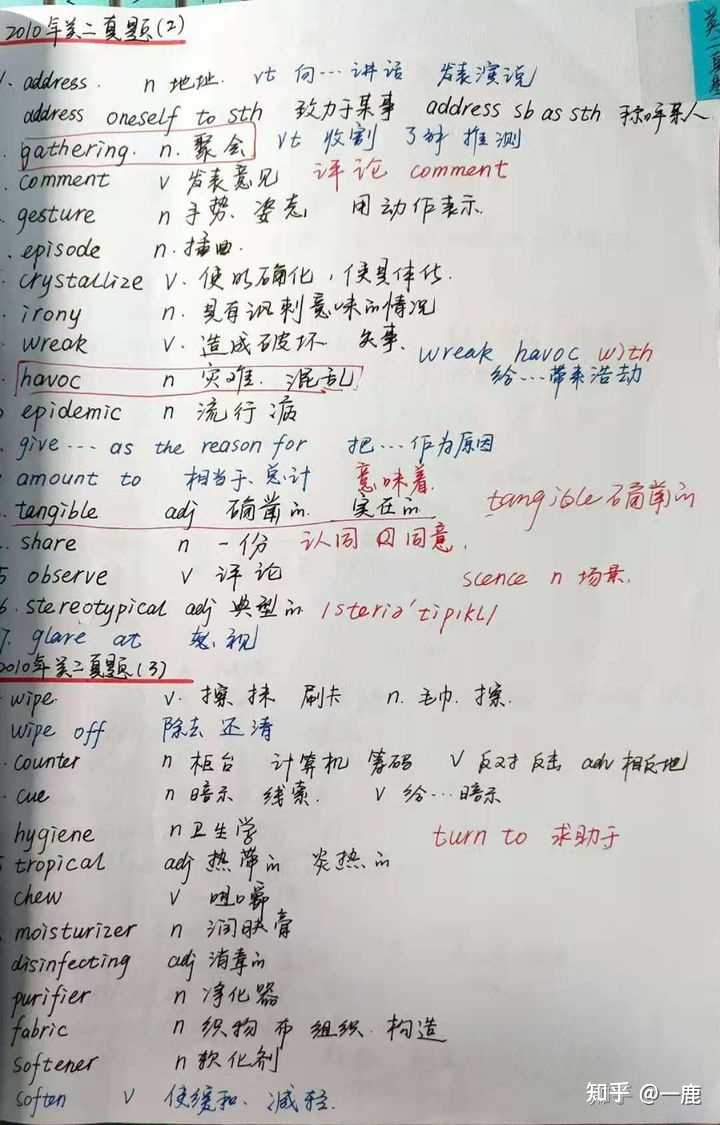 2010年英二真题(2)
1. address. n 地址. vt 向…讲话 发表演说
address oneself to sth 致力于某事 address sb as sth 称呼某人
gathering. n. 聚会 vt 收割 了解 推测
comment v 发表意见 评论 comment
gesture n 手势. 姿态 用动作表示.
episode n. 插曲.
crystallize v. 使明确化, 使具体化.
irony n. 具有讽刺意味的情况
wreak v. 造成破坏 矢事.
wreak havoc with
havoc n 灾难. 混乱 给…带来浩劫
epidemic n 流行病
give … as the reason for 把…作为原因
amount to 相当于、总计 意味着.
tangible adj 确凿的. 实在的 tangible 确凿的
share n 一份 认同 同意.
5 observe v 评论 scence n 场景.
6. stereotypical adj 典型的 /steriə'tipikl/
7. glare at 怒视
2010年英二真题(3)
wipe v. 擦 抹 刷卡 n. 毛巾. 擦.
wipe off 除去 还清
counter n 柜台 计算机 筹码 v 反对 反击 adv 相反地
cue n 暗示 线索. v 给…暗示
hygiene n 卫生学 turn to 求助于
tropical adj 热带的 炎热的
chew v 咀嚼
moisturizer n 润肤膏
disinfecting adj 消毒的
purifier n 净化器
fabric n 织物 布 组织. 构造
softener n 软化剂
soften v 使缓和. 减轻.
知乎 @一鹿